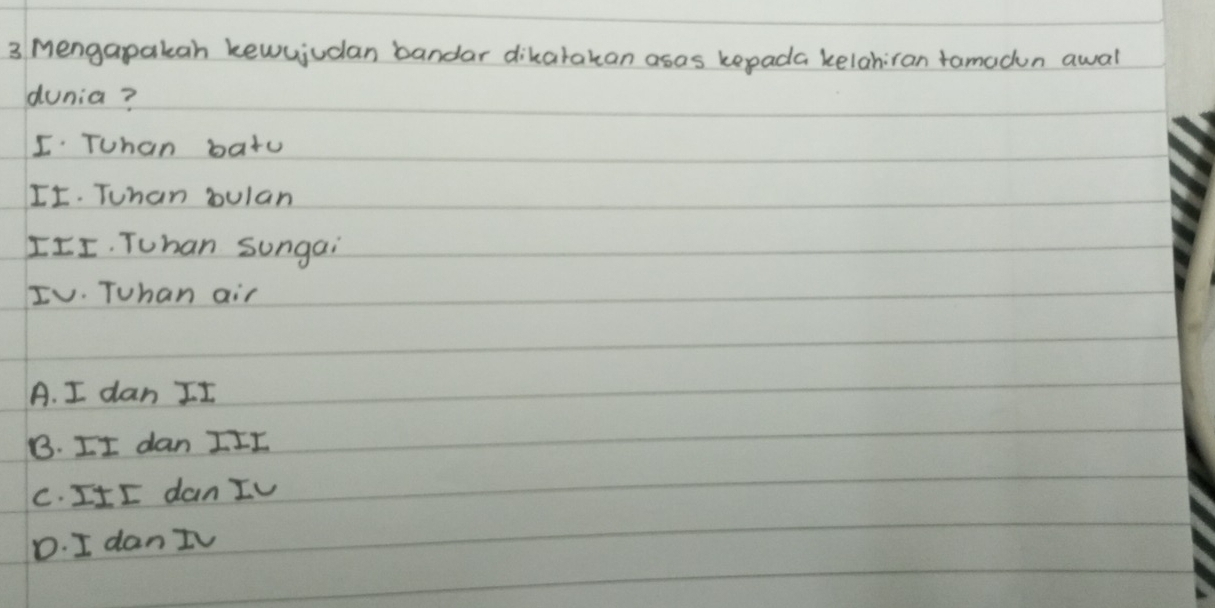 3 Mengapakah kewujudan bandar dikatakan asas kepada kelahiran tamadun awal
dunia?
I. Tuhan batu
II. Tuhan bulan
III. Tuhan sungai
IV. Tuhan air
A. I dan II
B. II dan III
C. III dan IV
D. I dan IV